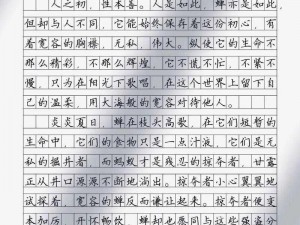 人之初，性本善。人是如此，蝉亦是如此，
但却与人不同，它能始终保存着这份初心，有
着宽容的胸襟，无私，伟大。纵使它的生命不
那么漫长，但它依旧不急，不躁，不忙，不紧不
慢，只为在阳光下歌唱，在这个世界上留下自
己的温柔，用大海般的宽容对待他人。
炎炎夏日，蝉在枝头高歌，在它们短暂的
生命中，它们的食物只是一点汁液，它们是无
私的掘井者，而蚂蚁才是残忍的掠夺者，甘露
正从井口源源不断地淌出。掠夺者小心翼翼地
试探着，宽容的蝉反而谦让起来。掠夺者便变
本加厉，开怀畅饮，蝉却也愿同与这些强盗分